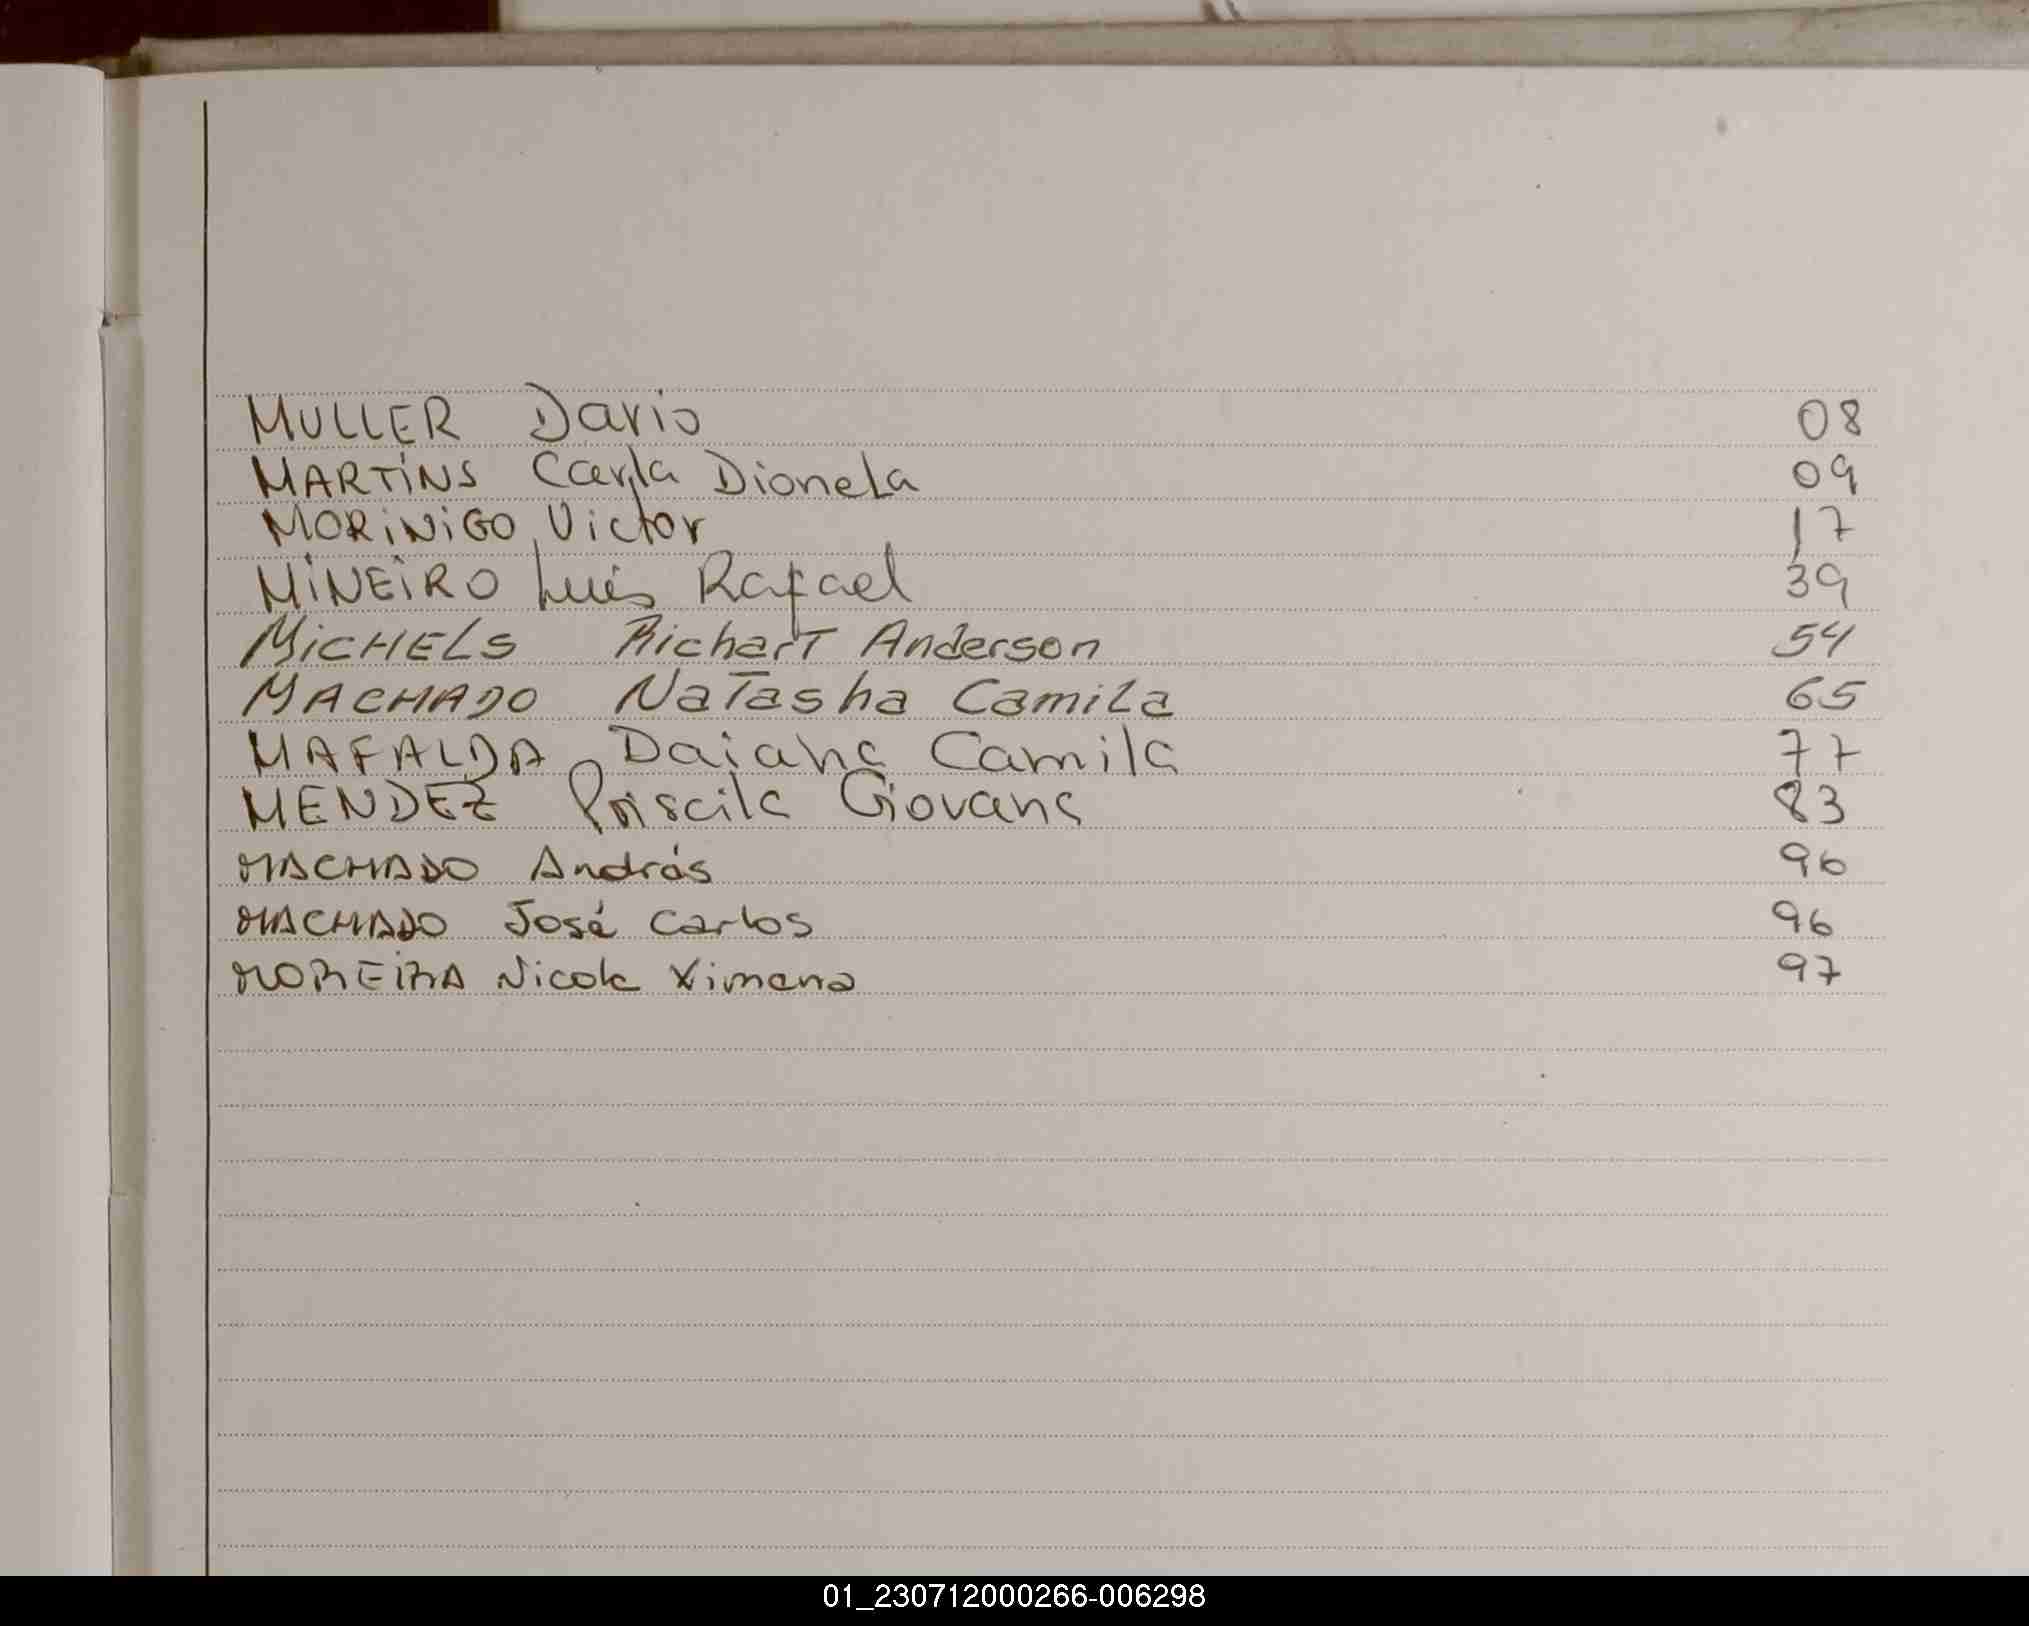 MULLER Dario 08
MARTiNS Carla Dionela 09
MORiNiGO Victor 17
MiNEiRO Luis Rafael 39
MiCHELS Richart Anderson 54
MACHADO NaTasha Camila 65
MAFALDA Daiana Camila 77
MENDEZ Priscila Giovana 83
MACHADO András 96
MACHADO José Carlos 96
MOREIRA Nicole Ximena 97
01_230712000266-006298